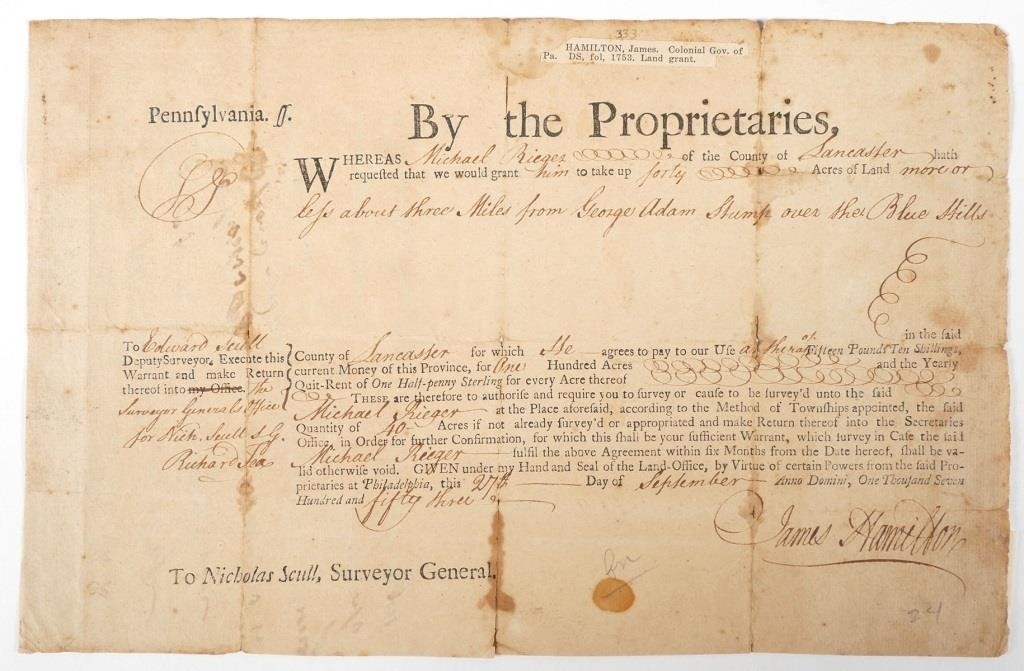 333
HAMILTON, James. Colonial Gov. of
Pa. DS, fol, 1753. Land grant.
Pennſylvania. ſſ.
By the Proprietaries,
WHEREAS Michael Rieger of the County of Lancaster hath
requeſted that we would grant him to take up forty Acres of Land more or
less about three Miles from George Adam Stump over the Blue Hills
in the ſaid
County of Lancaster for which He agrees to pay to our Uſe at the rate of Fifteen Pounds Ten Shillings,
current Money of this Province, for One Hundred Acres and the Yearly
Quit-Rent of One Half-penny Sterling for every Acre thereof
THESE are therefore to authoriſe and require you to ſurvey or cauſe to be ſurvey'd unto the ſaid
Michael Rieger at the Place aforeſaid, according to the Method of Townſhips appointed, the ſaid
Quantity of 40 Acres if not already ſurvey'd or appropriated and make Return thereof into the Secretaries
Office, in Order for further Confirmation, for which this ſhall be your ſufficient Warrant, which ſurvey in Caſe the ſaid
Michael Rieger fulfil the above Agreement within ſix Months from the Date hereof, ſhall be va-
lid otherwiſe void. GIVEN under my Hand and Seal of the Land-Office, by Virtue of certain Powers from the ſaid Pro-
prietaries at Philadelphia, this 27th Day of September Anno Domini, One Thouſand Seven
Hundred and fifty three
To Edward Scull
Deputy Surveyor. Execute this
Warrant and make Return
thereof into my Office. the
Surveyor Generals Office
for Nich. Scull S G.
Richard Lea
James Hamilton
To Nicholas Scull, Surveyor General.
24